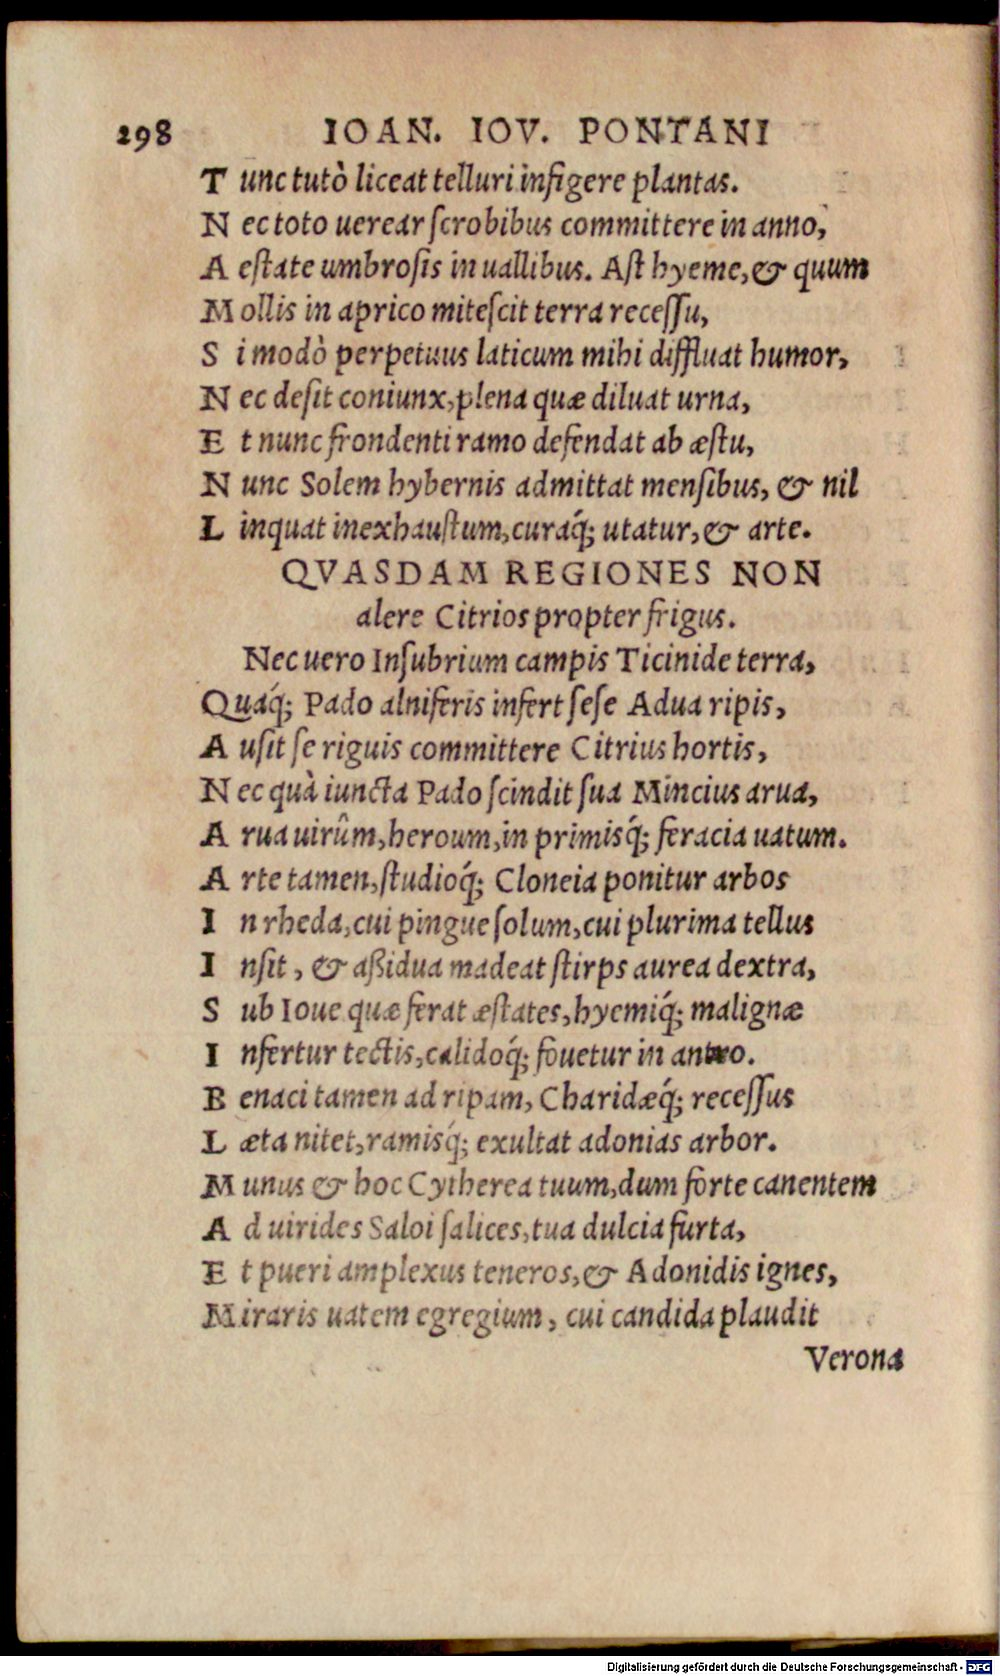 298 IOAN. IOV. PONTANI
T unc tutò liceat telluri infigere plantas.
N ec toto uerear ſcrobibus committere in anno,
A eſtate umbroſis in uallibus. Aſt hyeme, & quum
M ollis in aprico miteſcit terra receſſu,
S i modò perpetuus laticum mihi diffluat humor,
N ec deſit coniunx, plena quæ diluat urna,
E t nunc frondenti ramo defendat ab æſtu,
N unc Solem hybernis admittat menſibus, & nil
L inquat inexhauſtum, curaq́; utatur, & arte.
QVASDAM REGIONES NON
alere Citrios propter frigus.
Nec uero Inſubrium campis Ticinide terra,
Quaq́; Pado alniferis infert ſeſe Adua ripis,
A uſit ſe riguis committere Citrius hortis,
N ec quà iuncta Pado ſcindit ſua Mincius arua,
A rua uirûm, heroum, in primisq́; feracia uatum.
A rte tamen, ſtudioq́; Cloneia ponitur arbos
I n rheda, cui pingue ſolum, cui plurima tellus
I nſit, & aßidua madeat ſtirps aurea dextra,
S ub Ioue quæ ferat æſtates, hyemiq́; malignæ
I nfertur tectis, calidoq́; fouetur in antro.
B enaci tamen ad ripam, Charidæq́; receſſus
L æta nitet, ramisq́; exultat adonias arbor.
M unus & hoc Cytherea tuum, dum forte canentem
A d uirides Saloi ſalices, tua dulcia furta,
E t pueri amplexus teneros, & Adonidis ignes,
M iraris uatem egregium, cui candida plaudit
Verona
Digitalisierung gefördert durch die Deutsche Forschungsgemeinschaft - DFG